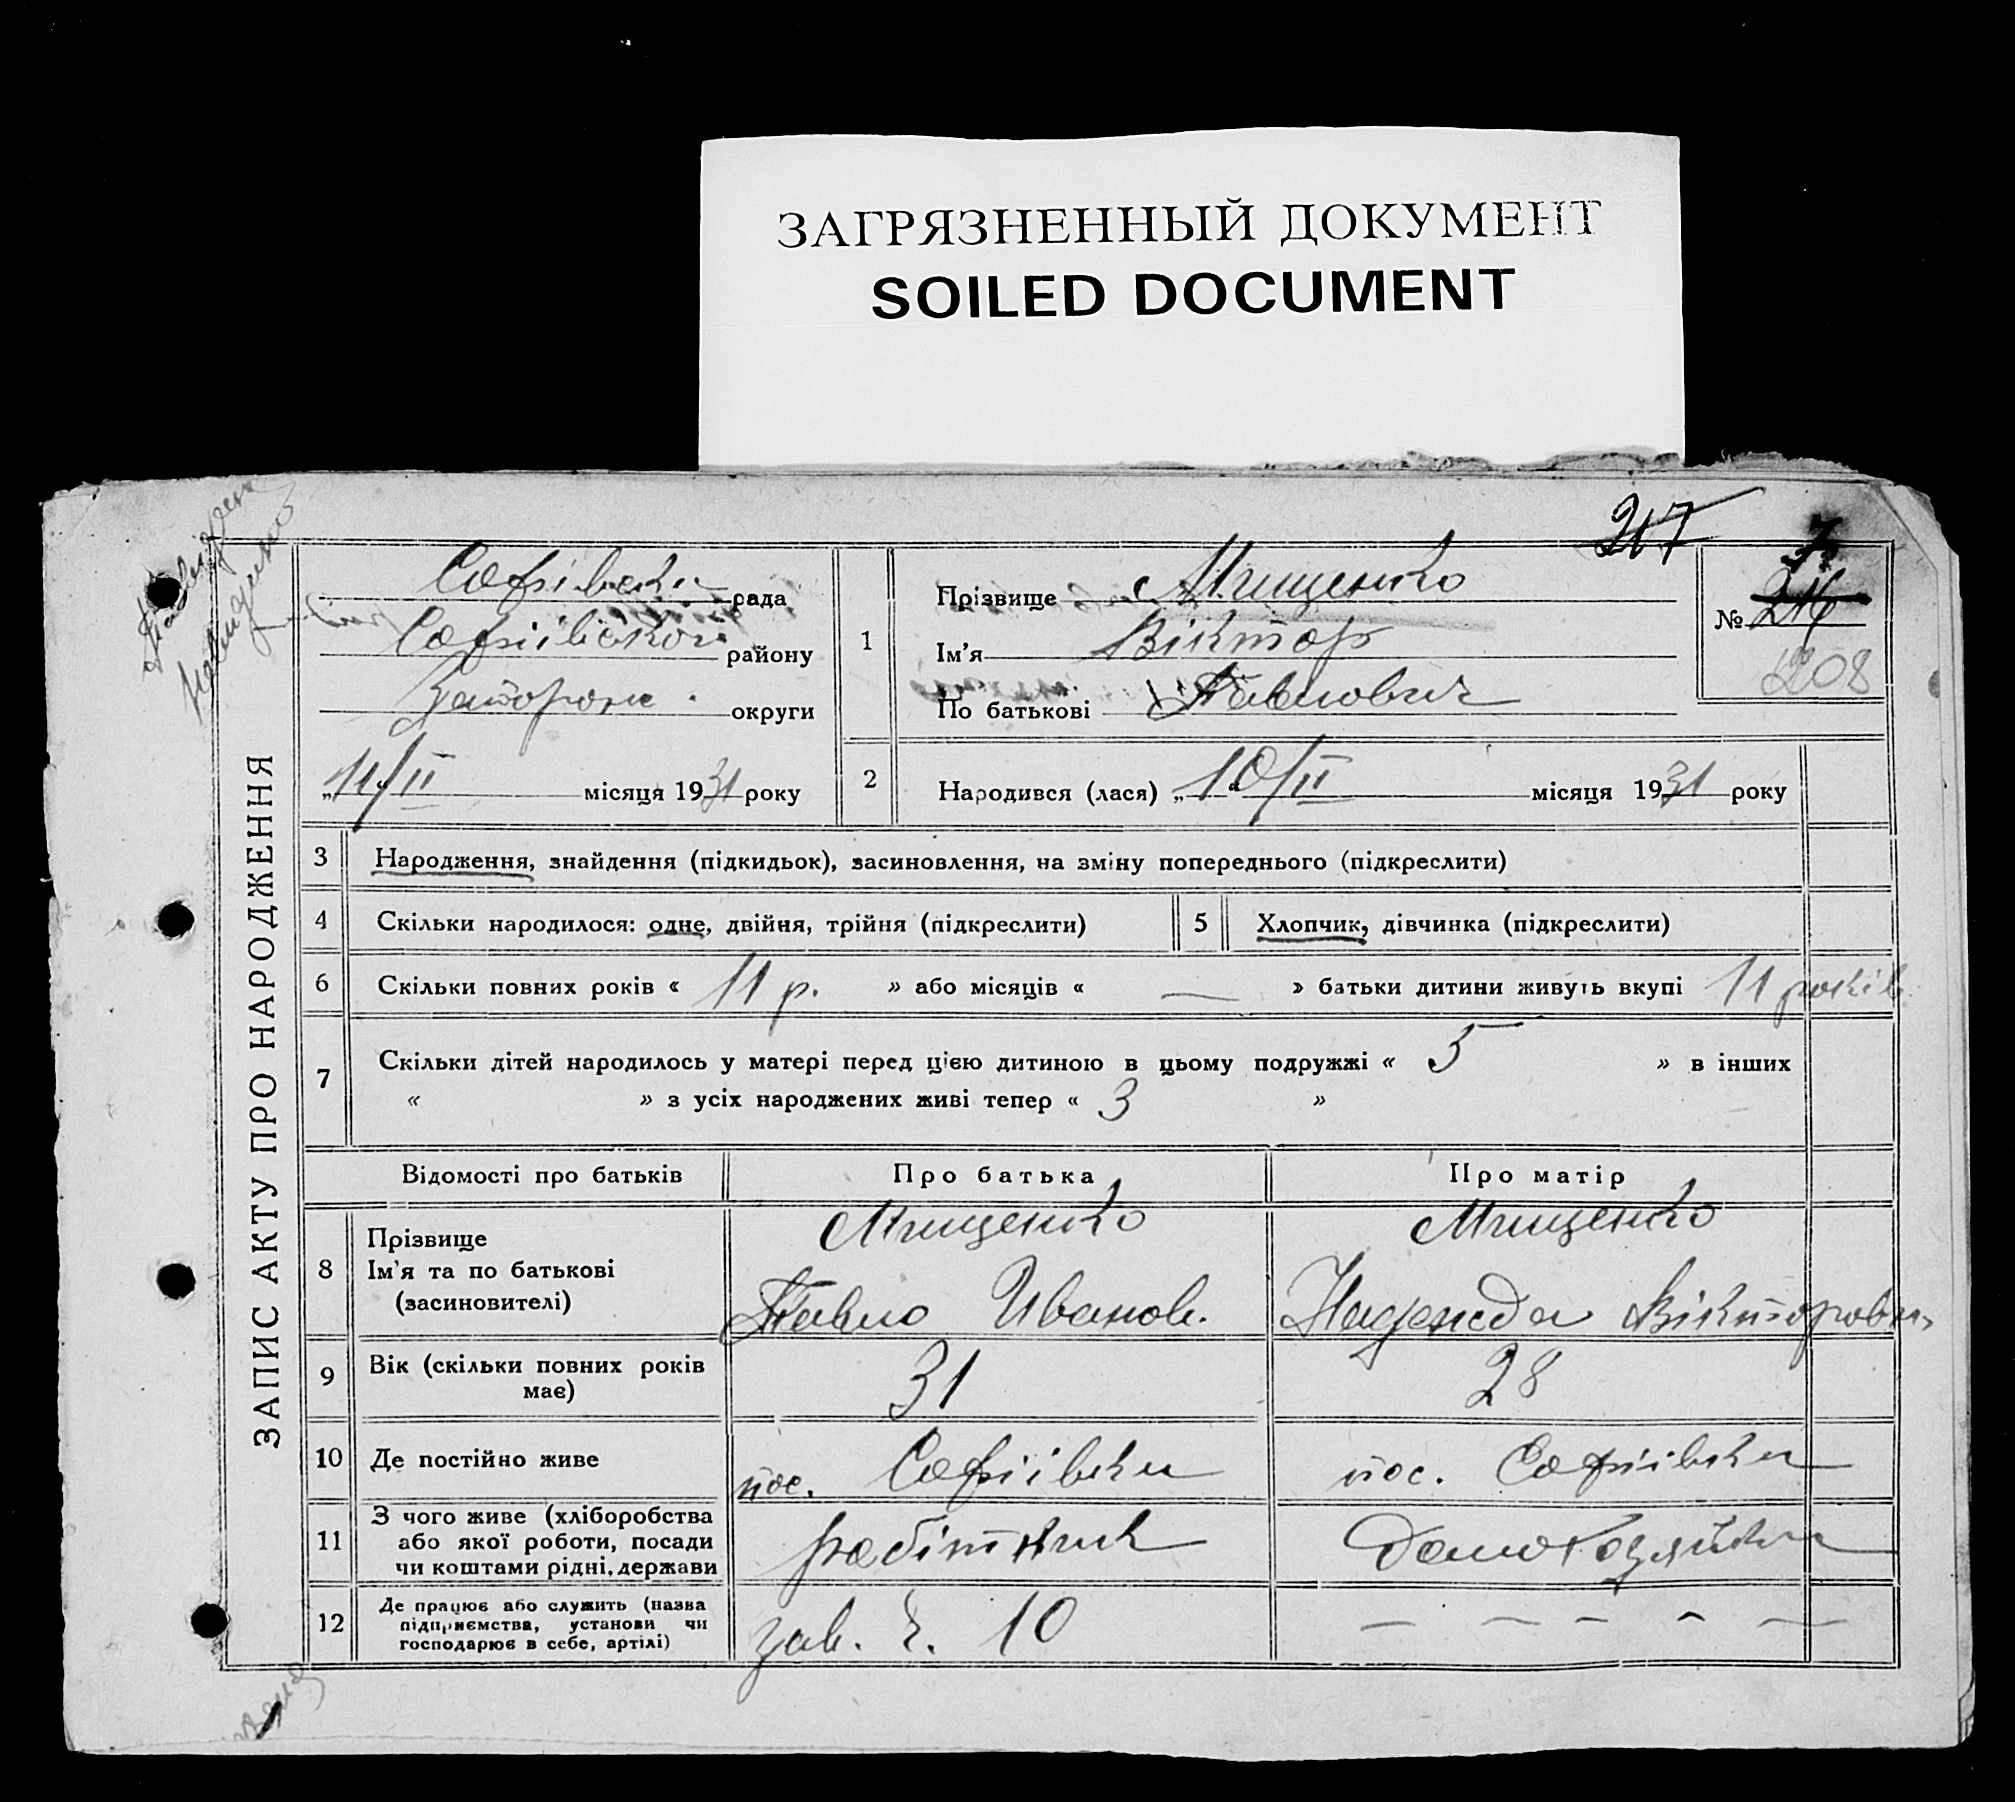 ЗАГРЯЗНЕННЫЙ ДОКУМЕНТ
SOILED DOCUMENT
217
ЗАПИС АКТУ ПРО НАРОДЖЕННЯ
Софіівська рада
Софіівского району
Запорож. округи
„11/II місяця 1931 року
1
Прізвище Мищенко
Ім'я Віктор
По батькові Павлович
7
№ 216
208
2
Народився (лася) „10/II місяця 1931 року
3 Народження, знайдення (підкидьок), засиновлення, на зміну попереднього (підкреслити)
4 Скільки народилося: одне, двійня, трійня (підкреслити) 5 Хлопчик, дівчинка (підкреслити)
6 Скільки повних років « 11 р. » або місяців « — » батьки дитини живуть вкупі 11 років
7 Скільки дітей народилось у матері перед цією дитиною в цьому подружжі « 5 » в інших
« » з усіх народжених живі тепер « 3 »
Відомості про батьків Про батька Про матір
8 Прізвище Мищенко Мищенко
Ім'я та по батькові Павло Иванов. Надежда Вікторовн.
(засиновителі)
9 Вік (скільки повних років має) 31 28
10 Де постійно живе пос. Софіівка пос. Софіівка
11 З чого живе (хліборобства або якої роботи, посади чи коштами рідні, держави робітник Домохозяйка
12 Де працює або служить (назва підприємства, установи чи господарює в себе, артілі) зав. ч. 10 — — — — —